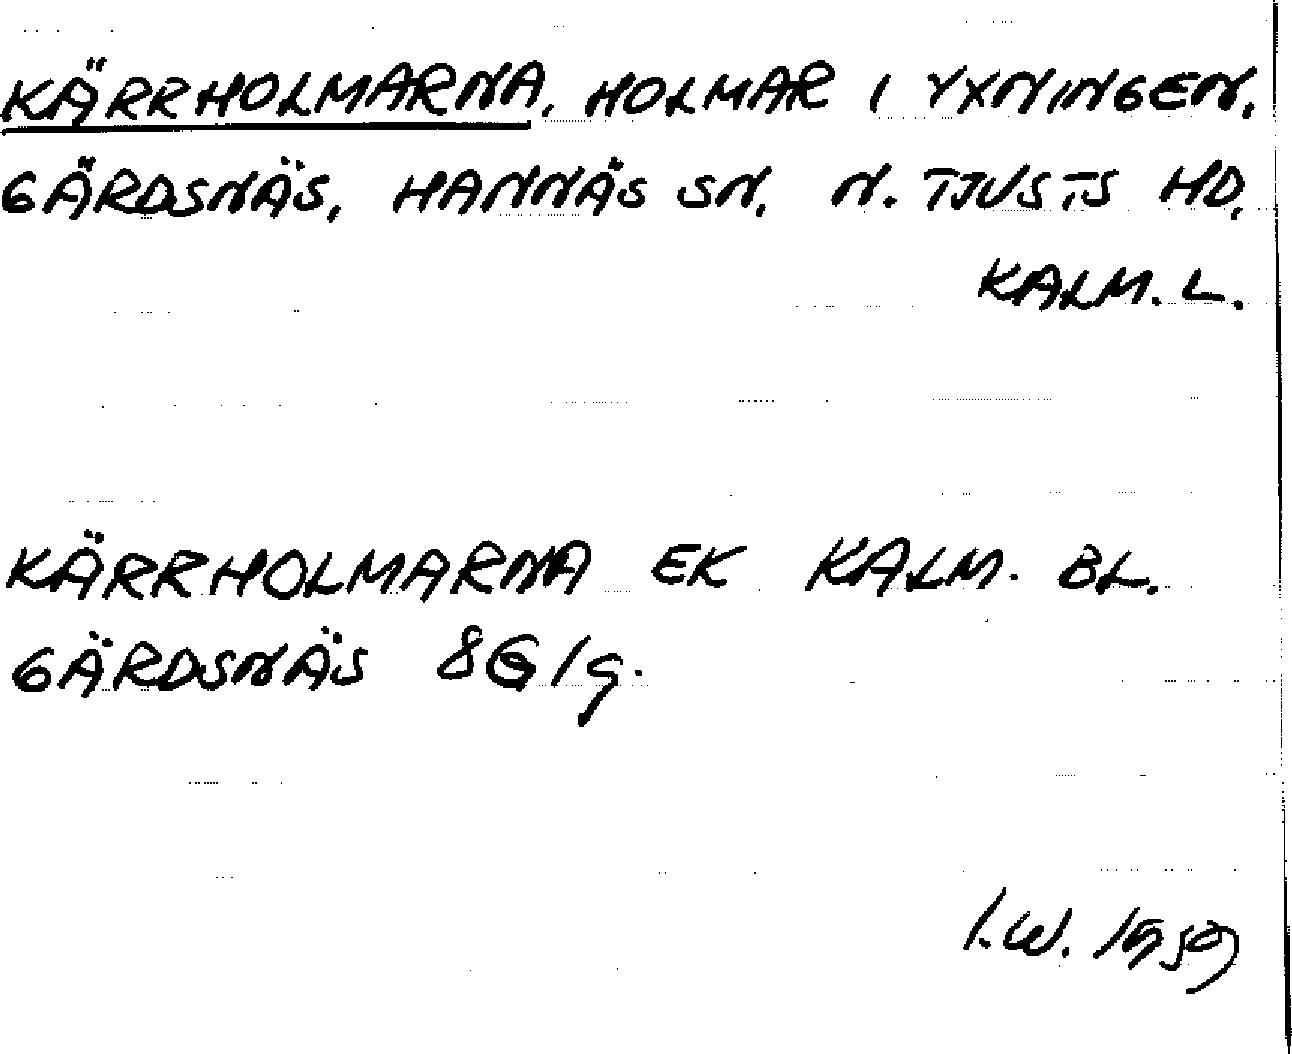 KÄRRHOLMARNA, HOLMAR I YXNINGEN,
GÄRDSNÄS, HANNÄS SN, N. TJUSTS HD,
KALM. L.
KÄRRHOLMARNA EK KALM. BL.
GÄRDSNÄS 8G/g.
I.W. 1959